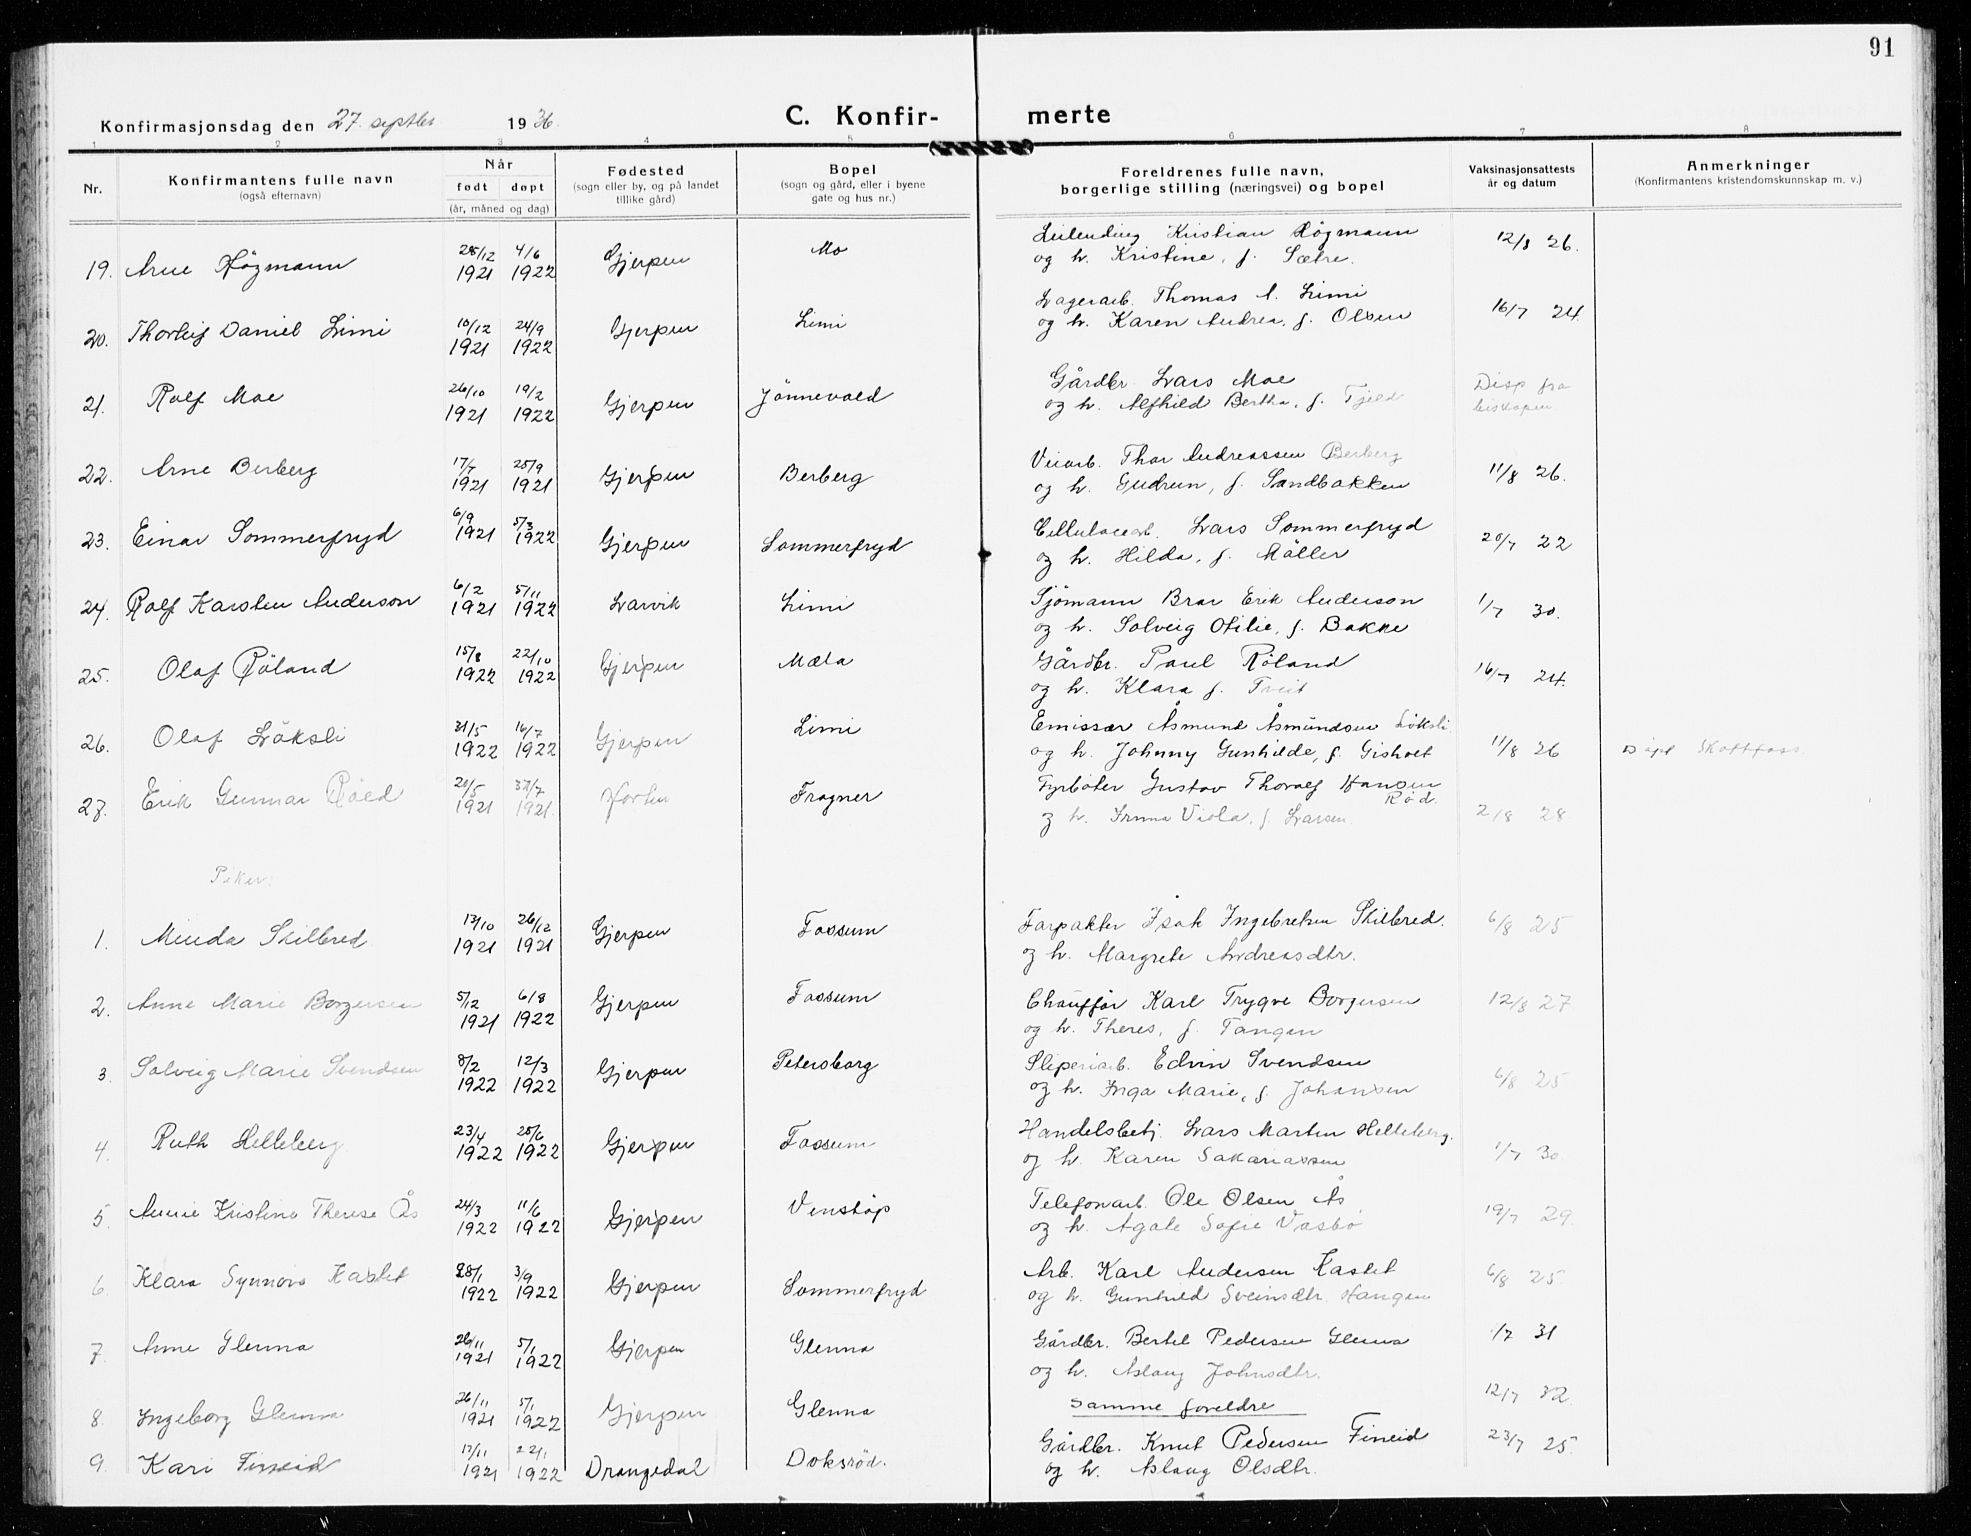 91
Konfirmasjonsdag den 27. septbr 1936.
C. Konfir- merte
1 2 3 4 5 6 7 8
Nr. Konfirmantens fulle navn (også efternavn) Når født døpt (år, måned og dag) Fødested (sogn eller by, og på landet tillike gård) Bopel (sogn og gård, eller i byene gate og hus nr.) Foreldrenes fulle navn, borgerlige stilling (næringsvei) og bopel Vaksinasjonsattests år og datum Anmerkninger (Konfirmantens kristendomskunnskap m. v.)
19. Arne Högmann 28/12 1921 4/6 1922 Gjerpen Mo Leilending Kristian Högmann 12/8 26.
og h. Kristine, f. Sætre.
20. Thorleif Daniel Limi 10/12 1921 24/9 1922 Gjerpen Limi Lagerarb. Thomas A. Limi 16/7 24.
og h. Karen Andrea, f. Olsen
21. Rolf Moe 26/10 1921 19/2 1922 Gjerpen Jönnevald Gårdbr. Lars Moe Disp fra
og h. Alfhild Bertha, f. Fjeld biskopen
22. Arne Berberg 17/7 1921 25/9 1921 Gjerpen Berberg Veiarb. Thor Andreassen Berberg 11/8 26.
og h. Gudrun, f. Sandbakken
23. Einar Sommerfryd 6/9 1921 5/3 1922 Gjerpen Sommerfryd Cellulosearb. Lars Sommerfryd 20/7 22
og h. Hilda, f. Möller
24. Rolf Karsten Anderson 6/2 1921 5/11 1922 Larvik Limi Sjömann Bror Erik Anderson 1/7 30.
og h. Solveig Otilie, f. Bakke
25. Olaf Röland 15/8 1922 22/10 1922 Gjerpen Mæla Gårdbr. Paul Röland 16/7 24.
og h. Klara f. Tveit
26. Olaf Löksli 31/5 1922 16/7 1922 Gjerpen Limi Emissær Åsmund Åsmundsen Löksli
og h. Johnny Gunhilde, f. Gisholt 11/8 26 Döpt Skotfoss.
27. Erik Gunnar Röed 20/5 1921 31/7 1921 Horten Fragner Fyrböter Gustav Thoralf Hansen Röd.
og h. Irma Viola, f. Larsen 2/8 28.
Piker:
1. Minda Skilbred 13/10 1921 26/12 1921 Gjerpen Fossum Forpakter Isak Ingebretsen Skilbred. 6/8 25
og h. Margrete Andreasdtr.
2. Anne Marie Borgersen 5/12 1921 6/8 1922 Gjerpen Fossum Chaufför Karl Trygve Borgersen 12/8 27.
og h. Theres, f. Tangen
3. Solveig Marie Svendsen 8/2 1922 12/3 1922 Gjerpen Petersborg Sliperiarb. Edvin Svendsen 6/8 25
og h. Inga Marie, f. Johansen
4. Ruth Helleberg 23/4 1922 25/6 1922 Gjerpen Fossum Handelsbetj. Lars Martin Helleberg. 1/7 30
og h. Karen Sakariassen
5. Annie Kristine Therese Ås 24/3 1922 11/6 1922 Gjerpen Venstöp Telefonarb. Ole Olsen Ås 19/7 29.
og h. Agate Sofie Vasbö
6. Klara Synnove Kastet 28/1 1922 3/9 1922 Gjerpen Sommerfryd Arb. Karl Andersen Kastet 6/8 25
og h. Gunhild Sveinsdtr. Haugen
7. Anne Glenna 26/11 1921 5/1 1922 Gjerpen Glenna Gårdbr. Bertel Pedersen Glenna 1/7 31
og h. Aslaug Johnsdtr.
8. Ingeborg Glenna 26/11 1921 5/1 1922 Gjerpen Glenna samme foreldre 12/7 32.
9. Kari Fineid 17/11 1921 22/1 1922 Drangedal Doksrød. Gårdbr. Knut Pedersen Fineid 23/7 25.
og h. Aslaug Olsdtr.